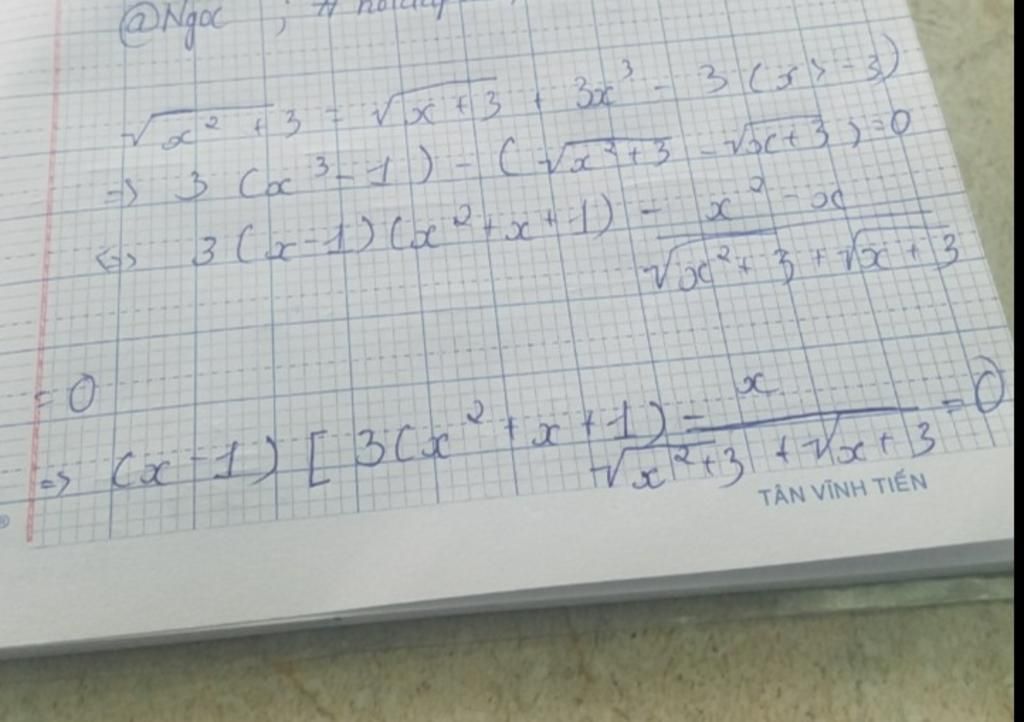 @Ngoc ; #
√x² + 3 = √x + 3 + 3x³ - 3 (x > -3)
=> 3 (x³ - 1) - (√x² + 3 - √x + 3) = 0
<=> 3 (x - 1) (x² + x + 1) - x² - x / √x² + 3 + √x + 3
= 0
=> (x - 1) [ 3(x² + x + 1) - x / √x² + 3 + √x + 3 = 0
TÂN VĨNH TIẾN